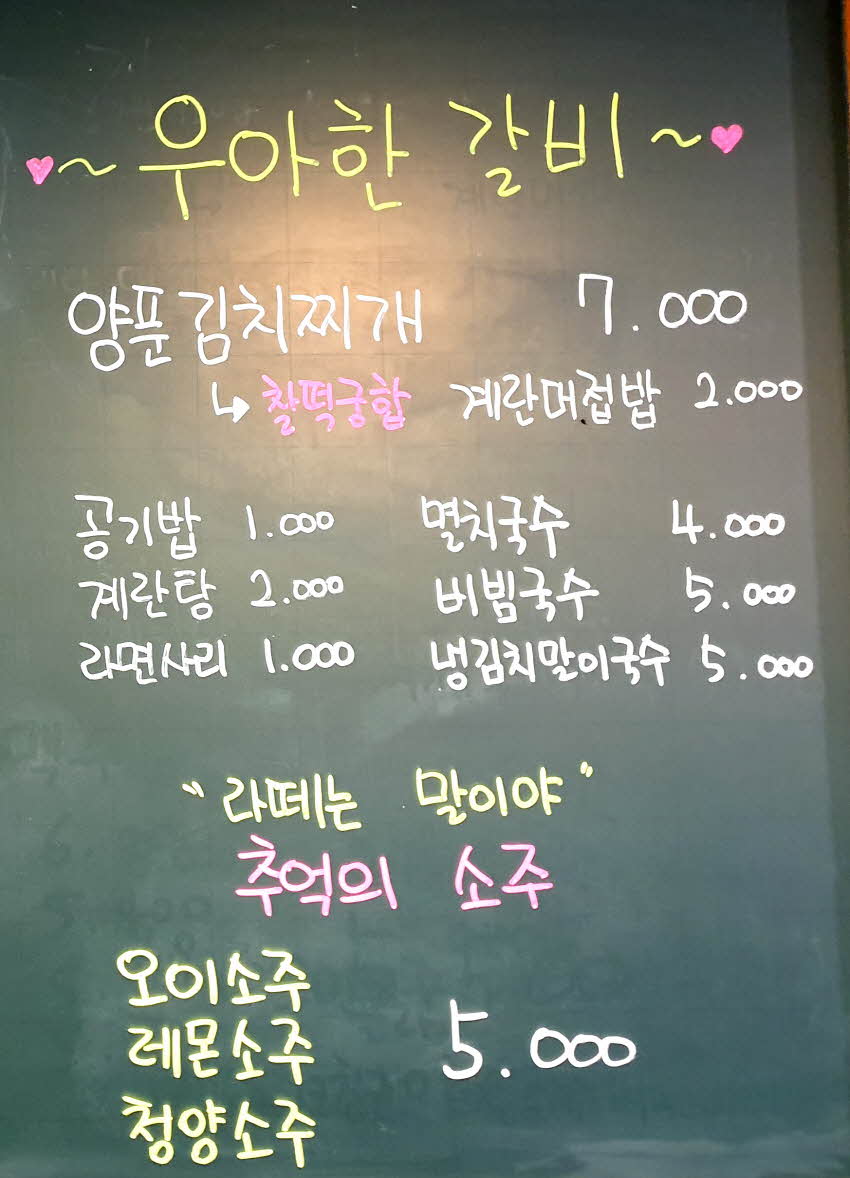 ♥~ 우아한 갈비 ~♥
양푼김치찌개 7.000
↳ 찰떡궁합 계란머접밥 2.000
공기밥 1.000 멸치국수 4.000
계란탕 2.000 비빔국수 5.000
라면사리 1.000 냉김치말이국수 5.000
"라떼는 말이야"
추억의 소주
오이소주
레몬소주 5.000
청양소주